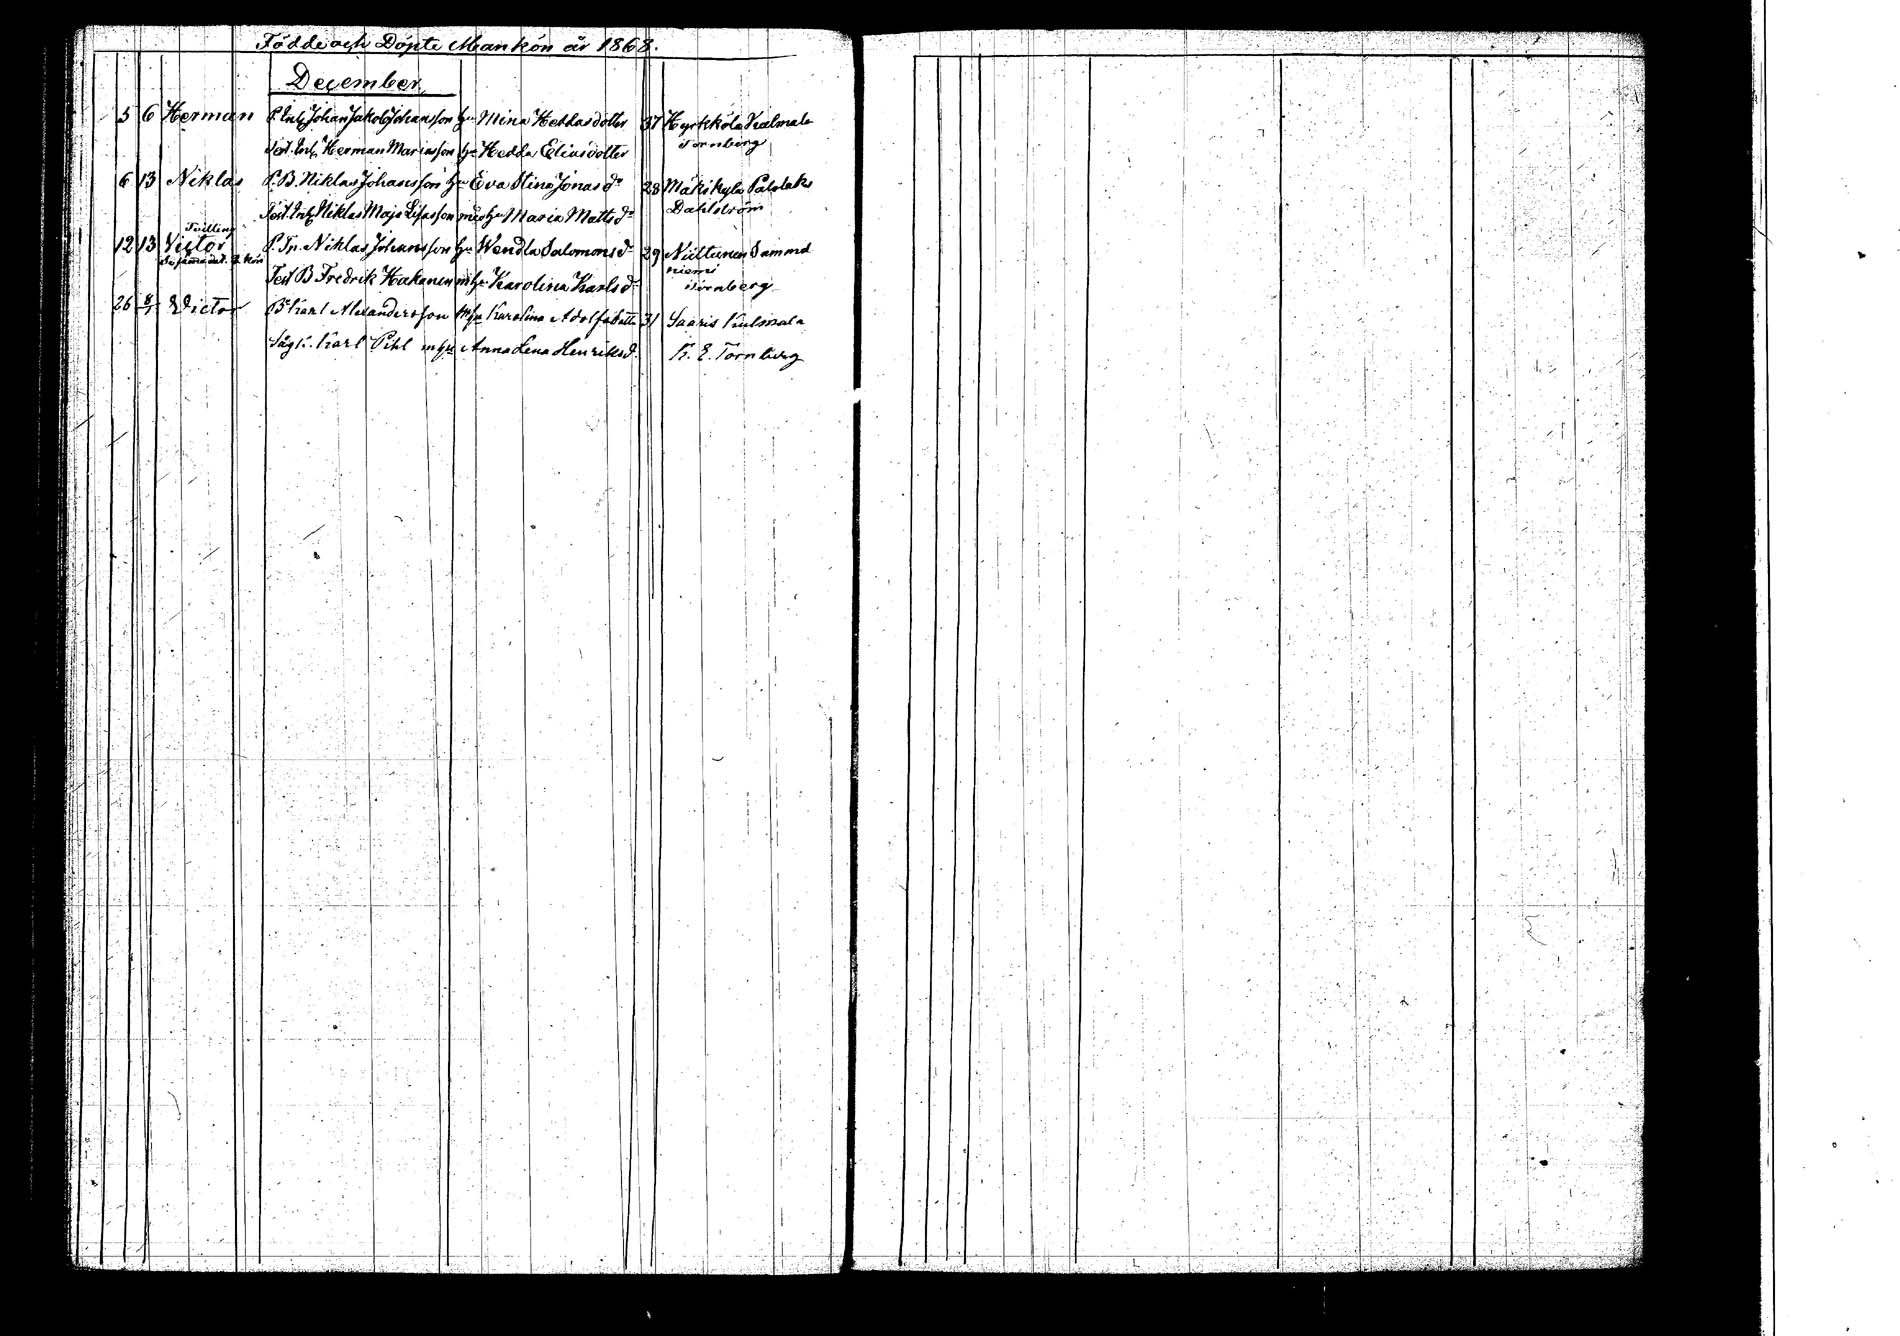 Födde och Döpte Mankön år 1868.
December
5 6 Herman P. Inh. Johan Jakob Johansson hu Mina Heddasdotter 37 Hyrkköla Kulmala
Test. Inh. Herman Mariasson hu Hedda Eliasdotter Tornberg
6 13 Niklas P. B. Niklas Johansson hu Eva Stina Jonasdr 28 Mäkikylä Palolaks
Test. Inh. Niklas Maja Lisasson med hu Maria Mattsdr Dahlström
Tvilling
12 13 Victor P. Tp. Niklas Johansson hu Wendla Salomonsdr 29 Niittunen Sammal
niemi
Test B Fredrik Hakanen m hu Karolina Karlsdr Törnberg
26 8/1 Victor B. Karl Alexandersson hu Karolina Adolfsdotter 31 Saaris Kulmala
Karl Pihl m hu Anna Lena Henriksd. K. E. Tornberg